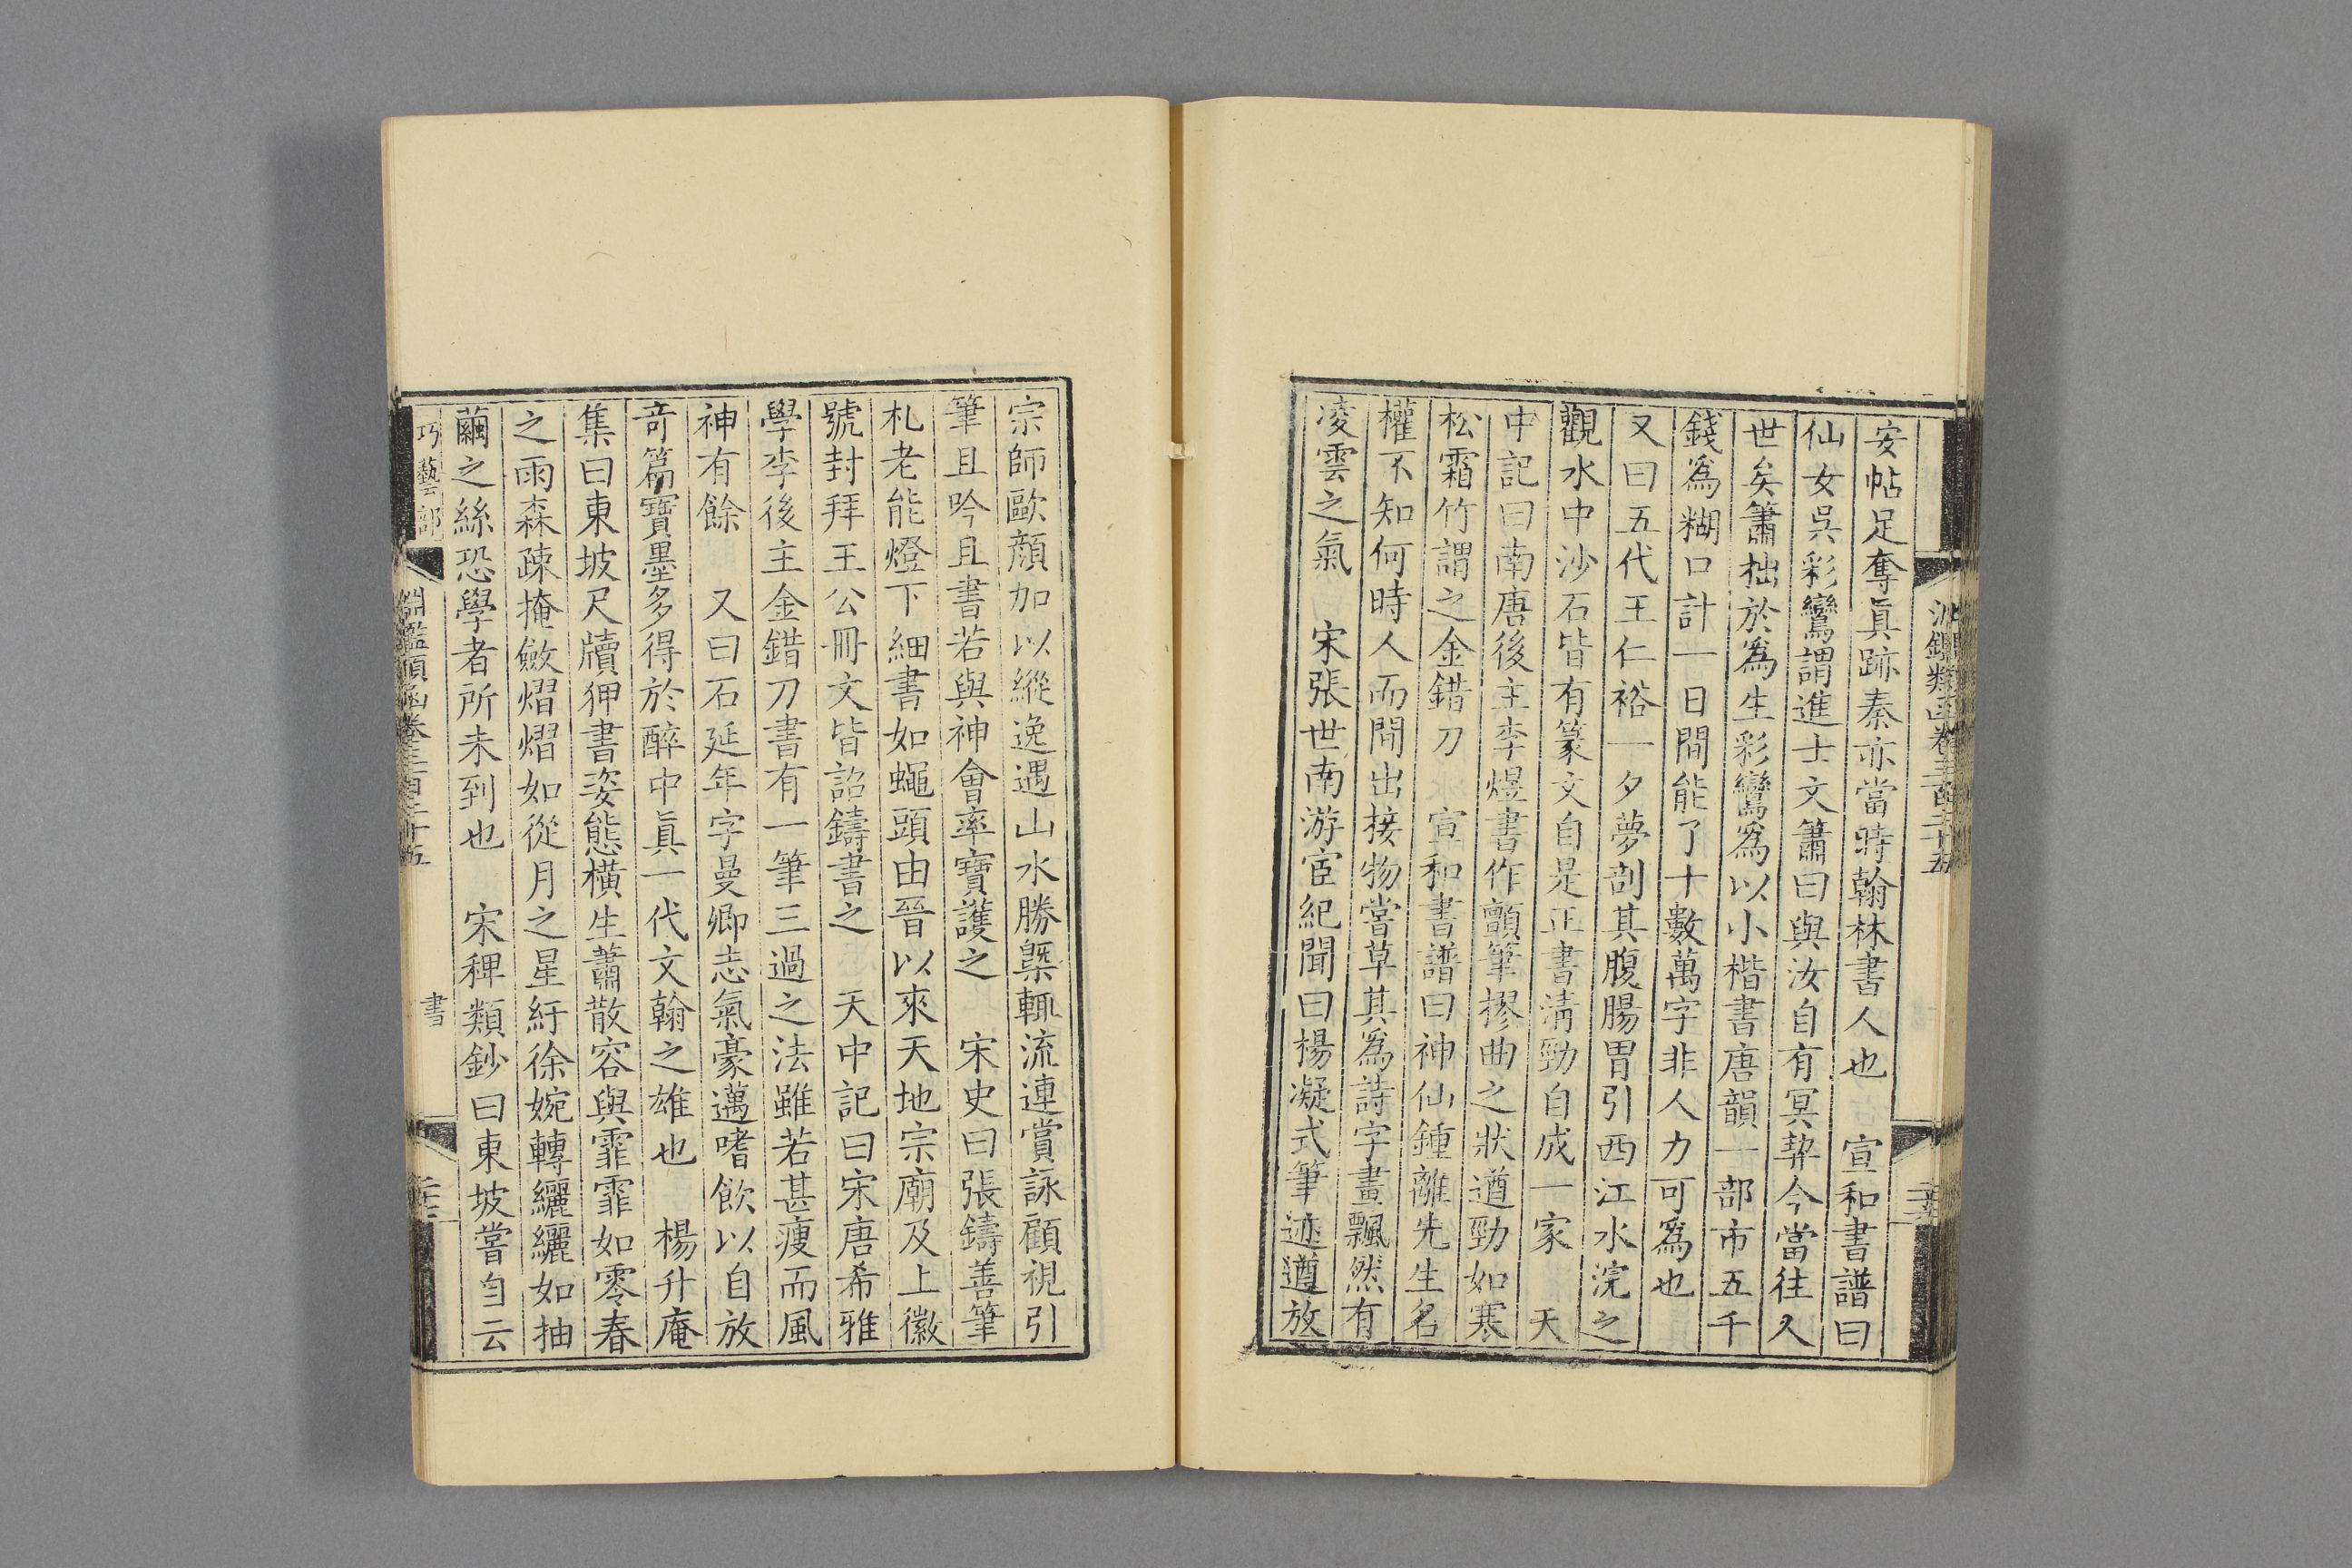 安帖足奪眞跡秦亦當時翰林書人也　宣和書譜曰
仙女吳彩鸞謂進士文簫曰與汝自有冥契今當往久
世矣簫拙於爲生彩鸞爲以小楷書唐韻一部市五千
錢爲糊口計一日間能了十數萬字非人力可爲也
又曰五代王仁裕一夕夢剖其腹腸胃引西江水浣之
觀水中沙石皆有篆文自是正書淸勁自成一家　天
中記曰南唐後主李煜書作顫筆摎曲之狀遒勁如寒
松霜竹謂之金錯刀　宣和書譜曰神仙鍾離先生名
權不知何時人而間出接物嘗草其爲詩字畫飄然有
凌雲之氣　宋張世南游宦紀聞曰楊凝式筆迹遒放
宗師歐顔加以縱逸遇山水勝槩輒流連賞詠顧視引
筆且吟且書若與神會率寶護之　宋史曰張鑄善筆
札老能燈下細書如蠅頭由晉以來天地宗廟及上徽
號封拜王公冊文皆詔鑄書之　天中記曰宋唐希雅
學李後主金錯刀書有一筆三過之法雖若甚瘦而風
神有餘　又曰石延年字曼卿志氣豪邁嗜飲以自放
奇篇寶墨多得於醉中眞一代文翰之雄也　楊升庵
集曰東坡尺牘狎書姿態橫生蕭散容與霏霏如零春
之雨森疎掩斂熠熠如從月之星紆徐婉轉纚纚如抽
繭之絲恐學者所未到也　宋稗類鈔曰東坡嘗自云
巧藝部　淵鑑類函卷三百二十五　書